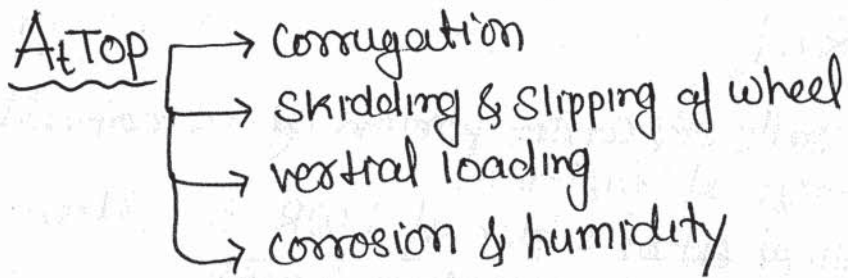 At TOP → Corrugation
→ Skidding & Slipping of wheel
→ vertial loading
→ corrosion & humidity